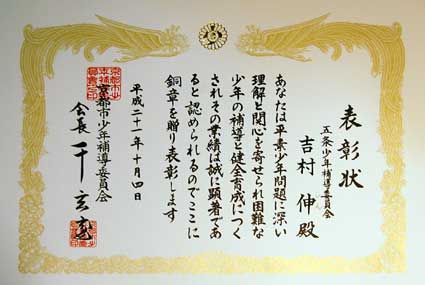 表彰状
五条少年補導委員会
吉村 伸 殿
あなたは平素少年問題に深い
理解と関心を寄せられ困難な
少年の補導と健全育成につく
されその業績は誠に顕著であ
ると認められるのでここに
銅章を贈り表彰します
平成二十一年十月四日
京都市少年補導委員会
会長 千 玄